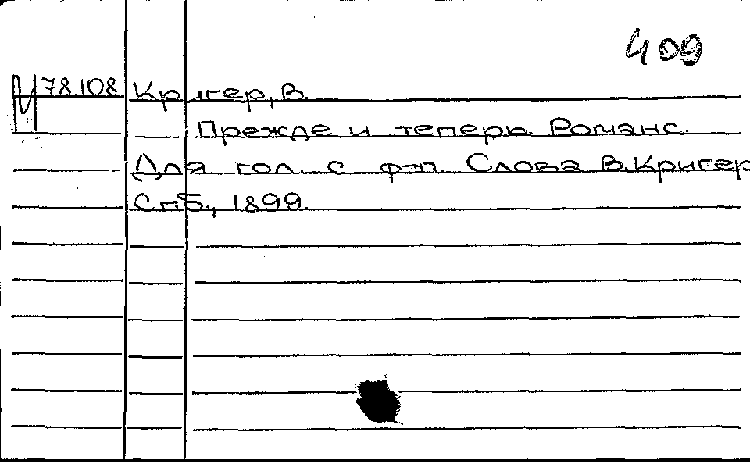 409
М 78.108 Кригер, В.
Прежде и теперь. Романс.
Для гол. с ф-п. Слова В. Кригер
СпБ., 1899.